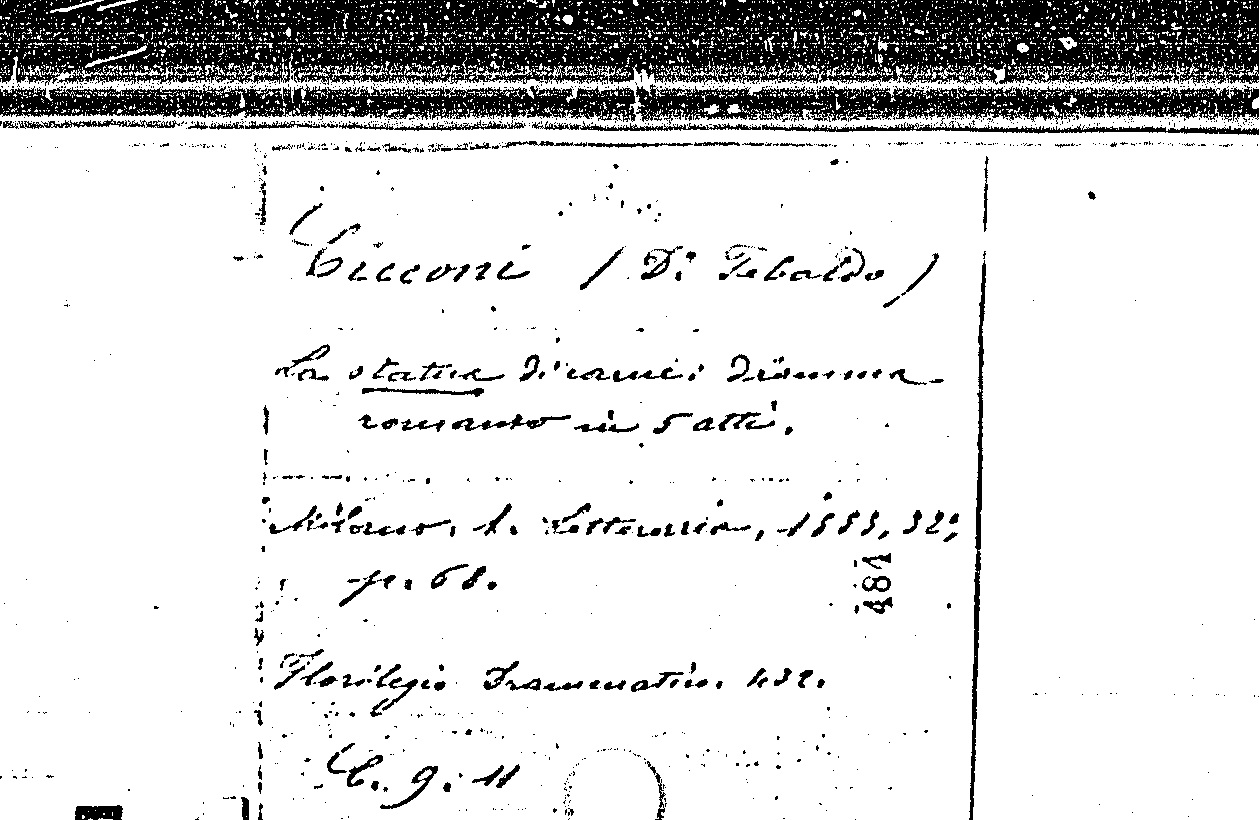 Cicconi (Dr. Tebaldo)
La statua di carne: dramma
romanzo in 5 atti.
Milano, t. Letteraria, 1883, 32º,
p. 68.
481
Florilegio Drammatico. 432.
C. 9. 11